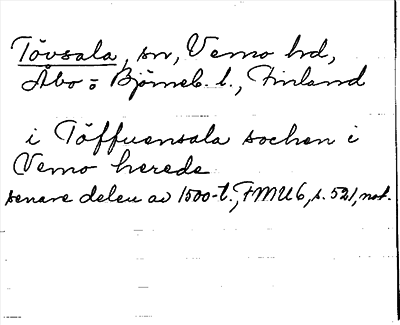 Tövsala, sn, Vemo hd,
Åbo o Björneb. l., Finland
i Töffuensala sochen i
Vemo herede
senare delen av 1500-t., FMU 6, s. 521, not.